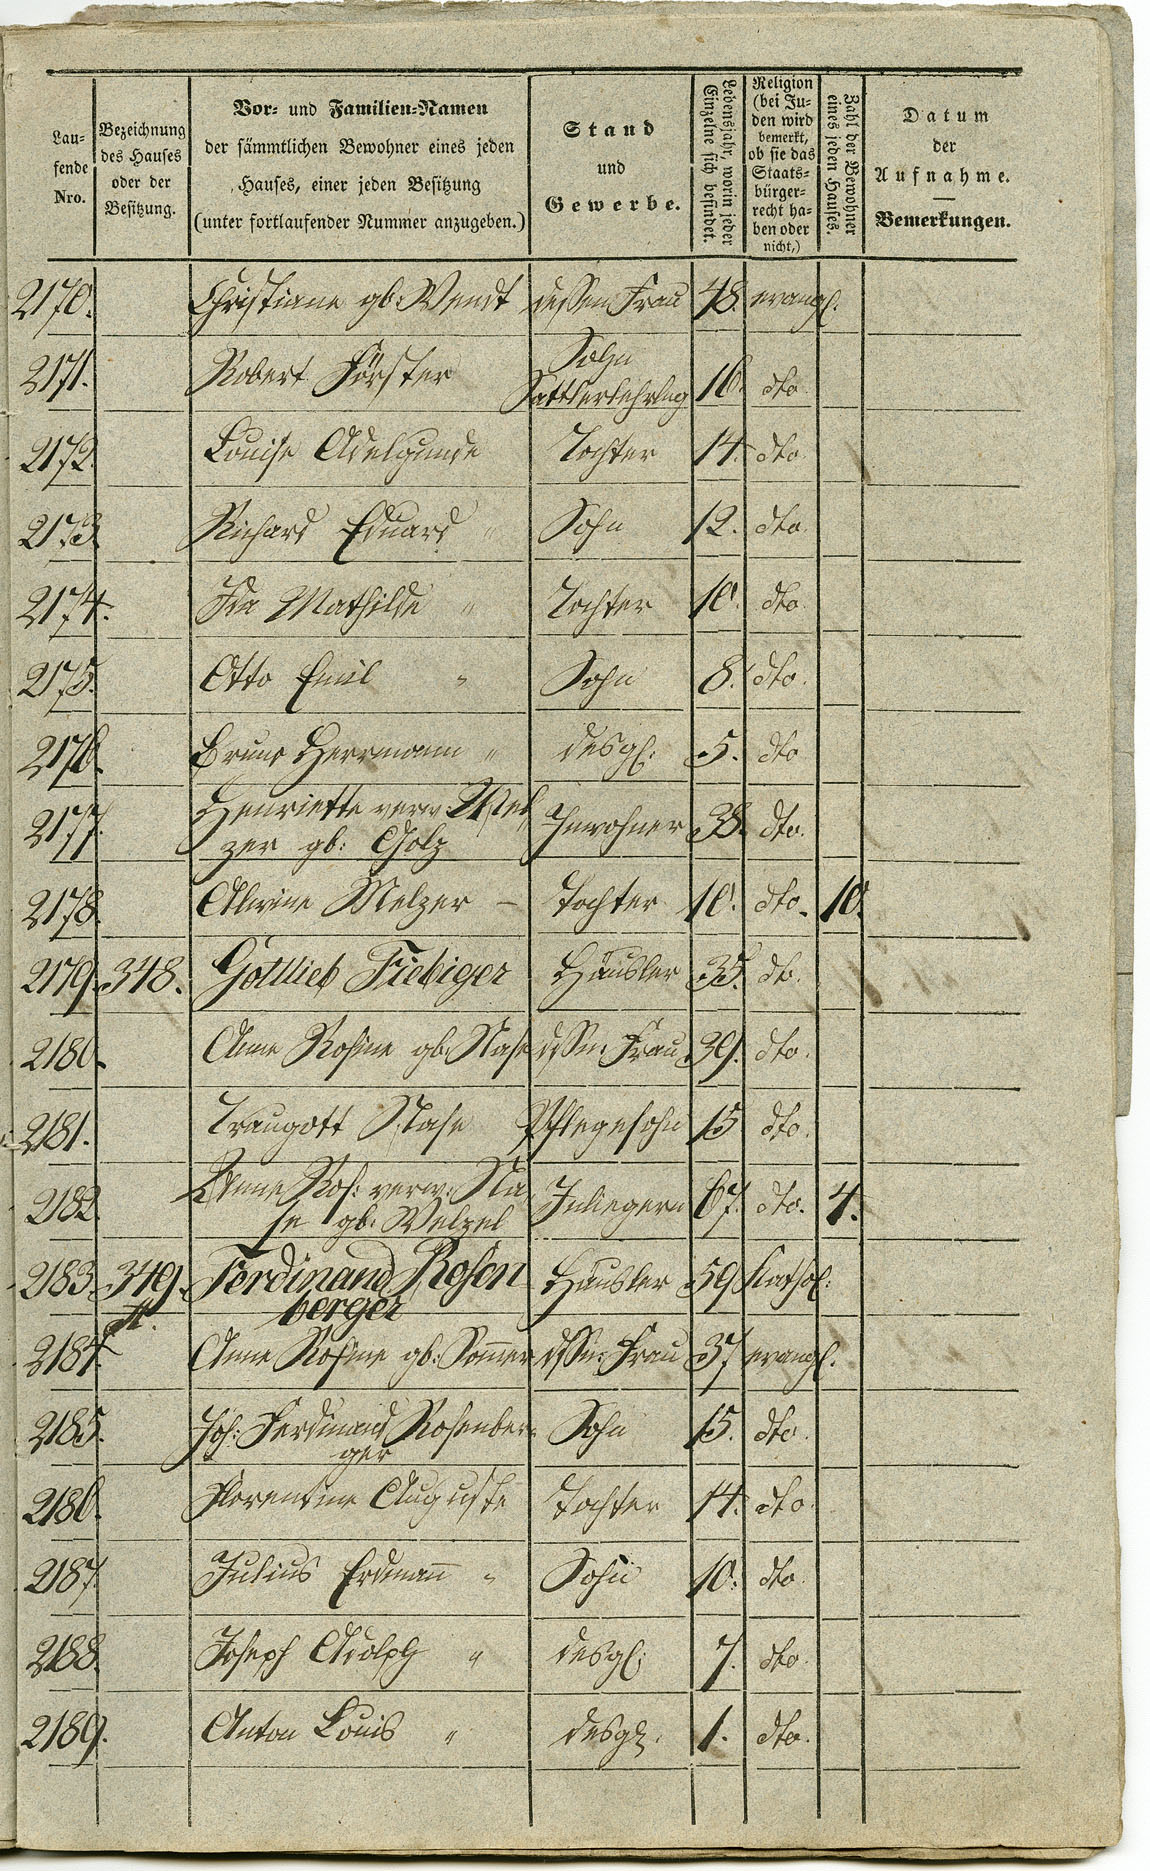 Lau-
fende
Nro.
Bezeichnung
des Hauses
oder der
Besitzung.
Vor- und Familien-Namen
der sämmtlichen Bewohner eines jeden
Hauses, einer jeden Besitzung
(unter fortlaufender Nummer anzugeben.)
Stand
und
Gewerbe.
Lebensjahr, worin jeder
Einzelne sich befindet.
Religion
(bei Ju-
den wird
bemerkt,
ob sie das
Staats-
bürger-
recht ha-
ben oder
nicht,)
Zahl der Bewohner
eines jeden Hauses.
Datum
der
Aufnahme.
Bemerkungen.
2170. Christiane gb: Wendt dessen Frau 48. evangl.
2171. Robert Förster Sohn
Sattlerlehrlng 16. dto
2172. Louise Adelgunde Tochter 14. dto.
2173 Richard Eduard " Sohn 12. dto.
2174. Ida Mathilde " Tochter 10. dto
2175. Otto Emil " Sohn 8. dto.
2176. Bruno Herrmann " desgl: 5. dto
2177. Henriette verw: Mel
zer gb: Scholz Inwohner 38. dto.
2178. Alwine Melzer — Tochter 10. dto. 10.
2179. 348. Gottlieb Fiebiger Häusler 35. dto.
2180. Anne Rosine gb: Nase dssn: Frau 39. dto.
2181. Traugott Nase Pflegesohn 15 dto.
2182. Anne Ros: verw: Na
se gb: Welzel Inliegern 67. dto. 4.
2183. 349. Ferdinand Rosen
berger Häusler 59 Kathol:
2184. Anne Rosine gb: Sommer dssn: Frau 37 evangl.
2185. Joh: Ferdinand Rosenber-
ger Sohn 15. dto.
2186. Florentine Auguste Tochter 14. dto.
2187. Julius Erdmann " Sohn 10. dto.
2188. Joseph Adolph " desgl: 7. dto.
2189. Anton Louis " desgl. 1. dto.